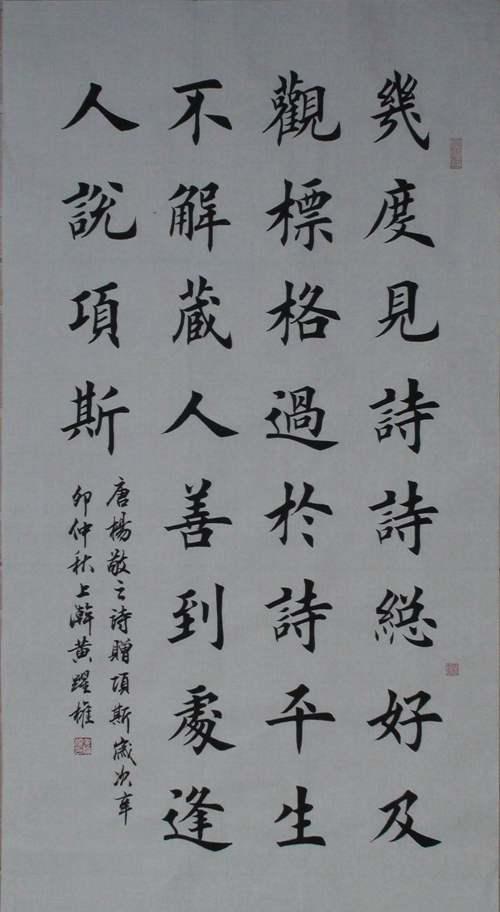 幾度見詩詩総好及
觀標格過於詩平生
不解蔵人善到處逢
人說項斯
唐楊敬之詩贈項斯歲次辛
卯仲秋上澣黄躍雄